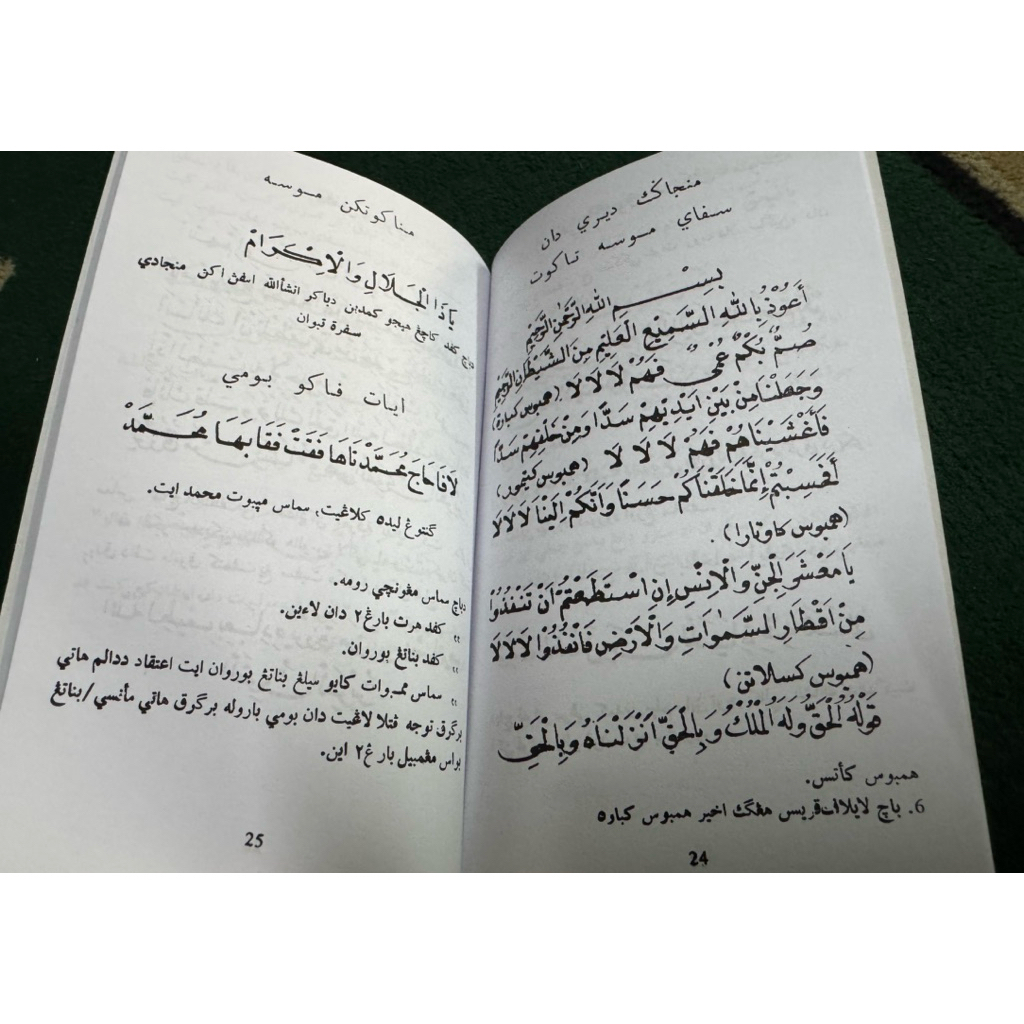 منجاڬ ديري دان
سفاي موسه تاكوت
بِسْمِ اللهِ الرَّحْمٰنِ الرَّحِيْمِ
أَعُوْذُ بِاللهِ السَّمِيْعِ الْعَلِيْمِ مِنَ الشَّيْطَانِ الرَّجِيْمِ
صُمٌّ بُكْمٌ عُمْيٌ فَهُمْ لَا لَا لَا (همبوس كباره)
وَجَعَلْنَا مِنْ بَيْنِ اَيْدِيْهِمْ سَدًّا وَمِنْ خَلْفِهِمْ سَدًّا
فَأَغْشَيْنَاهُمْ فَهُمْ لَا لَا لَا (همبوس كتيمور)
أَفَحَسِبْتُمْ إِنَّمَا خَلَقْنَاكُمْ حَسَنًا وَأَنَّكُمْ اِلَيْنَا لَا لَا لَا
(همبوس كاوتارا).
يَا مَعْشَرَ الْجِنِّ وَالْاِنْسِ إِنِ اسْتَطَعْتُمْ اَنْ تَنْفُذُوْا
مِنْ اَقْطَارِ السَّمٰوَاتِ وَالْاَرْضِ فَانْفُذُوْا لَا لَا لَا
(همبوس كسلاتن)
قَوْلُهُ الْحَقُّ وَلَهُ الْمُلْكُ وَبِالْحَقِّ اَنْزَلْنَاهُ وَبِالْحَقِّ
همبوس كأتس.
6. باچ لايلاف قريس هڠڬ اخير همبوس كباوه
24
مناكوتكن موسه
يَا ذَا الْجَلَالِ وَالْاِكْرَامْ
باچ كفد كاچڠ هيجو كمدين دباكر انشأالله اسفن اكن منجادي
سفرة تبوان
ايات فاكو بومي
لَافَا حَاجَ مُحَمَّدْ نَاهَا فَقَتْ فَقَابَهَا مُحَمَّدْ
ڬنتوڠ ليده كلاڠيت، سماس مپبوت محمد ايت.
دباچ سماس مڠونچي رومه.
" كفد هرت بارڠ٢ دان لاءين.
" كفد بناتڠ بوروان.
" سماس ممبوات كايو سيلڠ بناتڠ بوروان ايت اعتقاد ددالم هاتي
برڬرق نوجه فتلا لاڠيت دان بومي باروله برڬرق هاتي مأنسي/بناتڠ
بواس مڠمبيل بارڠ٢ اين.
25